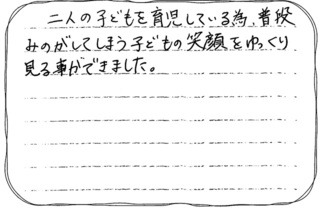 二人の子どもを育児している為、普段
みのがしてしまう子どもの笑顔をゆっくり
見る事ができました。